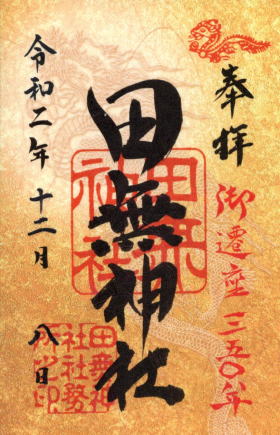 奉拝
御遷座三五〇年
田無神社
田無神社
令和二年十二月八日
田無神
社社務
所之印